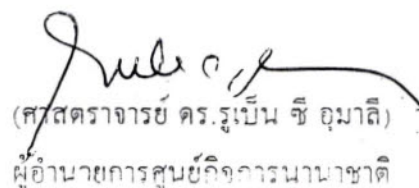 (ศาสตราจารย์ ดร.รูเบ็น ซี อุมาลี)
ผู้อำนวยการศูนย์กิจการนานาชาติ